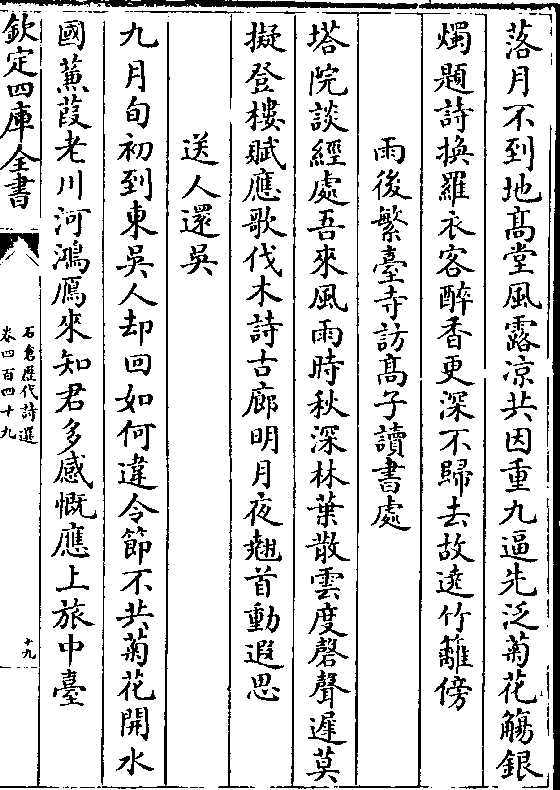 落月不到地髙堂風露凉共因重九逼先泛菊花觴銀
燭題詩換羅衣客醉香更深不歸去故遶竹籬傍
雨後繁臺寺訪髙子讀書處
塔院談經處吾來風雨時秋深林葉散雲度磬聲遲莫
擬登樓賦應歌伐木詩古廊明月夜翹首動遐思
送人還吳
九月旬初到東吳人却回如何違令節不共菊花開水
國蒹葭老川河鴻鴈來知君多感慨應上旅中臺
欽定四庫全書
石倉歷代詩選
卷四百四十九
十九